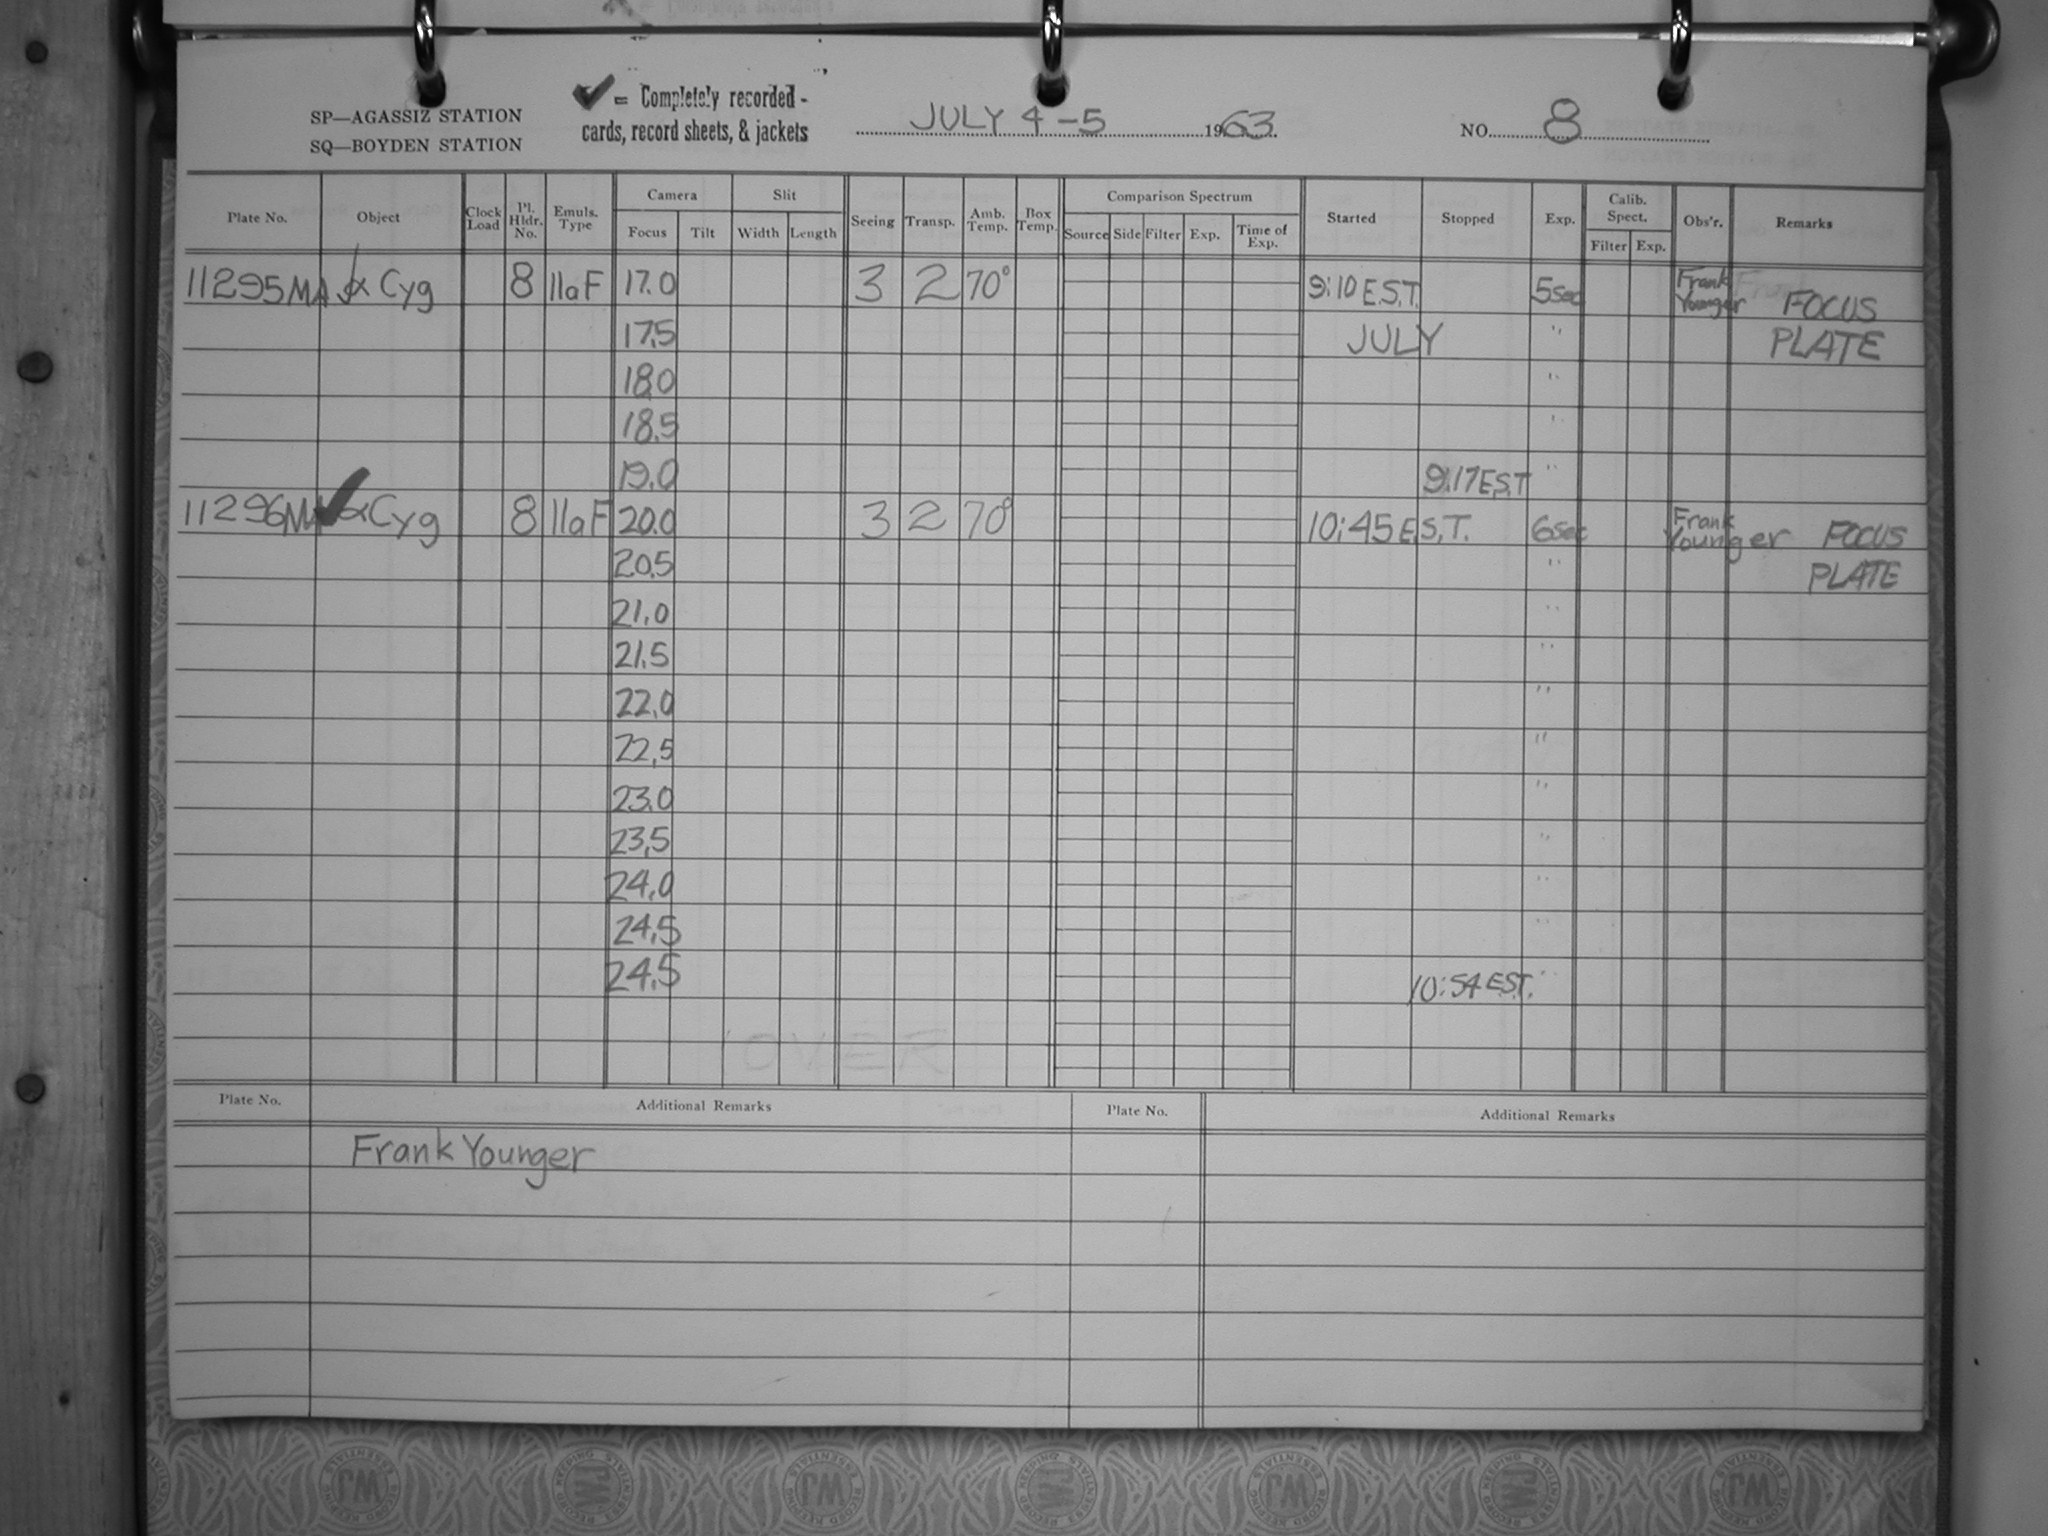 SP—AGASSIZ STATION
SQ—BOYDEN STATION
✓ = Completely recorded -
cards, record sheets, & jackets
JULY 4-5 1963
NO. 8
Plate No. Object Clock Load Pl. Hldr. No. Emuls. Type Camera Focus Tilt Slit Width Length Seeing Transp. Amb. Temp. Box Temp. Comparison Spectrum Source Side Filter Exp. Time of Exp. Started Stopped Exp. Calib. Spect. Filter Exp. Obs'r. Remarks
11295MA α Cyg 8 IIaF 17.0 3 2 70° 9:10 E.S.T. 5sec Frank Younger FOCUS
17.5 JULY " PLATE
18.0 "
18.5 "
19.0 9:17 EST "
11296MA ✓ α Cyg 8 IIaF 20.0 3 2 70° 10:45 E.S.T. 6sec Frank Younger FOCUS
20.5 " PLATE
21.0 "
21.5 "
22.0 "
22.5 "
23.0 "
23.5 "
24.0 "
24.5 "
24.5 10:54 EST. "
OVER
Plate No. Additional Remarks Plate No. Additional Remarks
Frank Younger